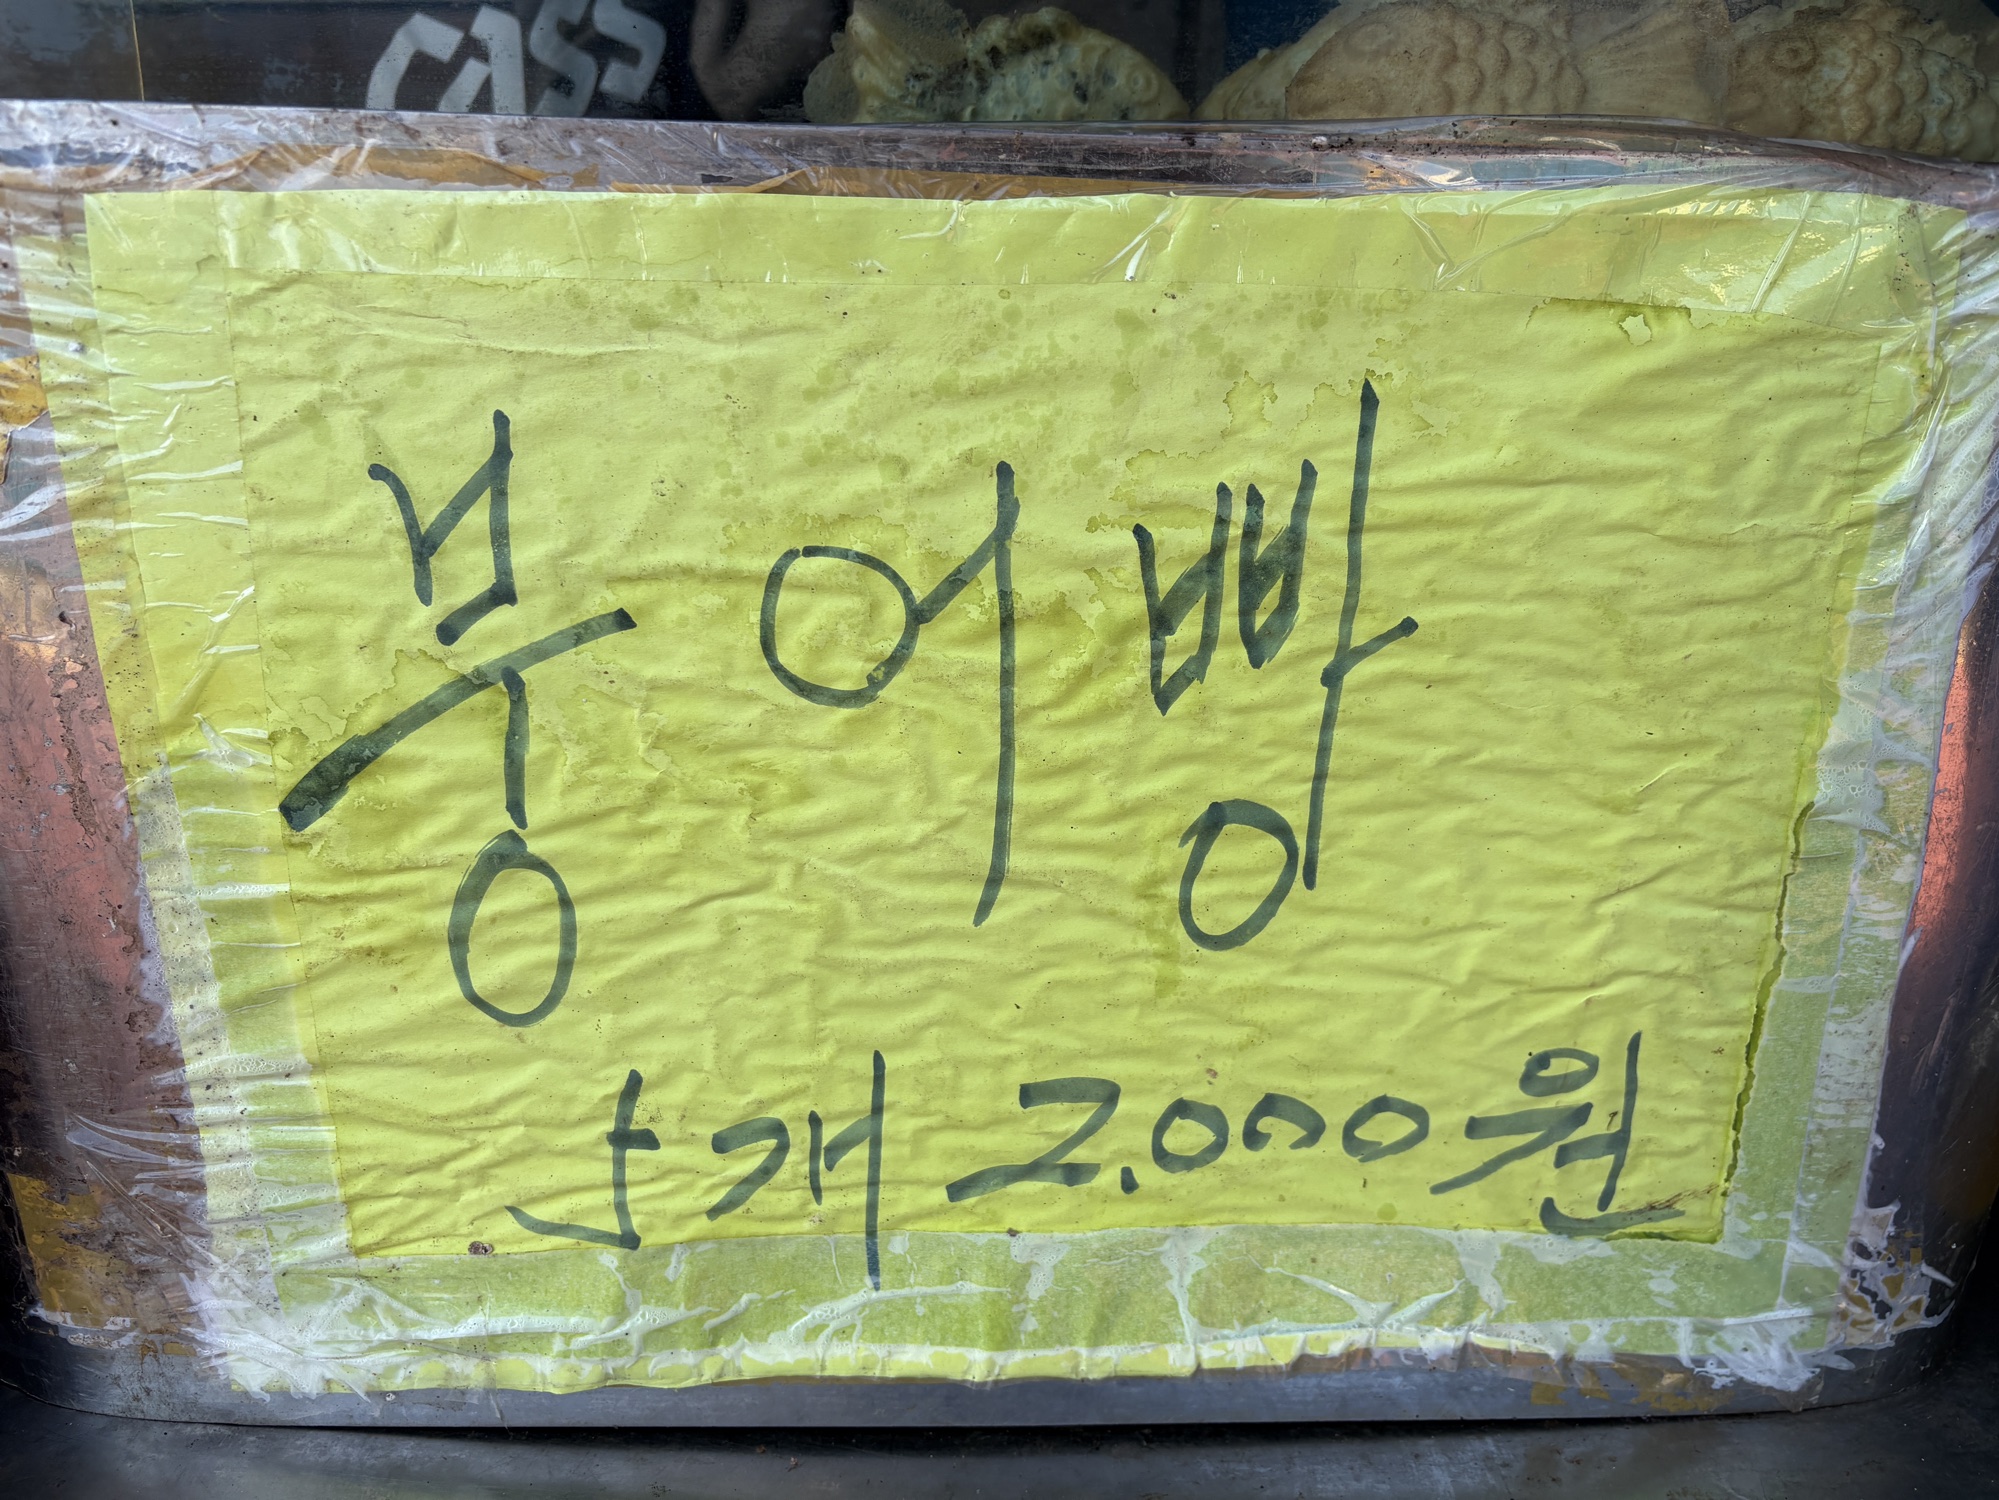 CASS
붕어빵
5개 2.000원